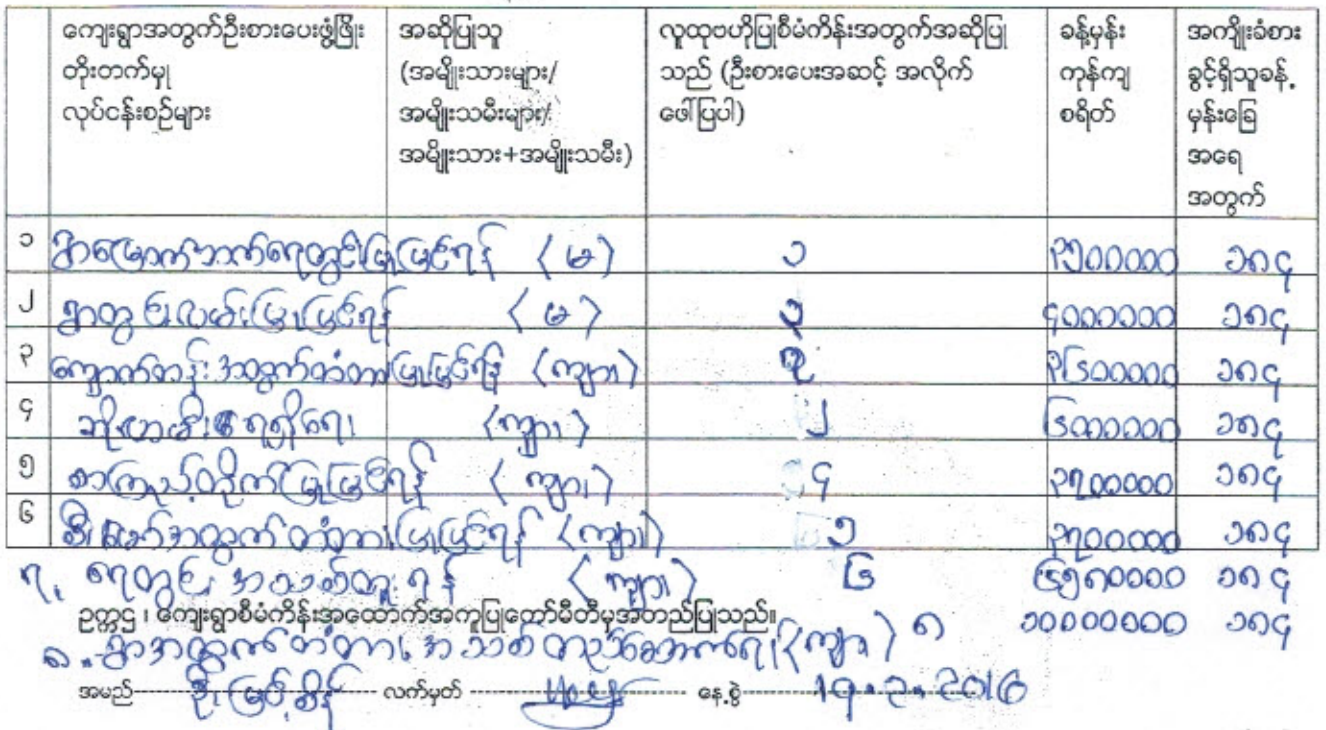 ကျေးရွာအတွက်ဦးစားပေးဖွံ့ဖြိုး တိုးတက်မှု လုပ်ငန်းစဉ်များ
အဆိုပြုသူ (အမျိုးသားများ/ အမျိုးသမီးများ/ အမျိုးသား+အမျိုးသမီး)
လူထုဗဟိုပြုစီမံကိန်းအတွက်အဆိုပြု သည် (ဦးစားပေးအဆင့် အလိုက် ဖေါ်ပြပါ)
ခန့်မှန်း ကုန်ကျ စရိတ်
အကျိုးခံစား ခွင့်ရှိသူခန့် မှန်းခြေ အရေ အတွက်
၁ ရွာမြောက်ဘက်ရေတွင်းပြုပြင်ရန် (မ) ၁ ၃၅၀၀၀၀၀ ၁၈၄
၂ ရွာတွင်းလမ်းပြုပြင်ရန် (မ) ၄၀၀၀၀၀၀ ၁၈၄
၃ ကျောက်တန်းအထွက်တံတားပြုပြင်ရန် (ကျား) ၃၆၀၀၀၀၀ ၁၈၄
၄ ရရှိရေး (ကျား) ၂ ၆၀၀၀၀၀၀ ၁၈၄
၅ စာကြည့်တိုက်ပြုပြင်ရန် (ကျား) ၄ ၃၇၀၀၀၀၀ ၁၈၄
၆ အထွက်တံတားပြုပြင်ရန် (ကျား) ၅ ၃၇၀၀၀၀၀ ၁၈၄
၇. ရေတွင်းအသစ်တူးရန် (ကျား) ၆ ၆၅၈၀၀၀၀ ၁၈၄
ဥက္ကဌ ၊ ကျေးရွာစီမံကိန်းအထောက်အကူပြုကော်မီတီမှအတည်ပြုသည်။ ၁၀၈၀၀၀၀၀ ၁၈၄
၈. ရွာအထွက်တံတားအသစ်တည်ဆောက်ရေး (ကျား) ၈
အမည် ဦးမြင့်စိန် လက်မှတ် နေ့စွဲ ၁၇.၃.၂၀၁၆